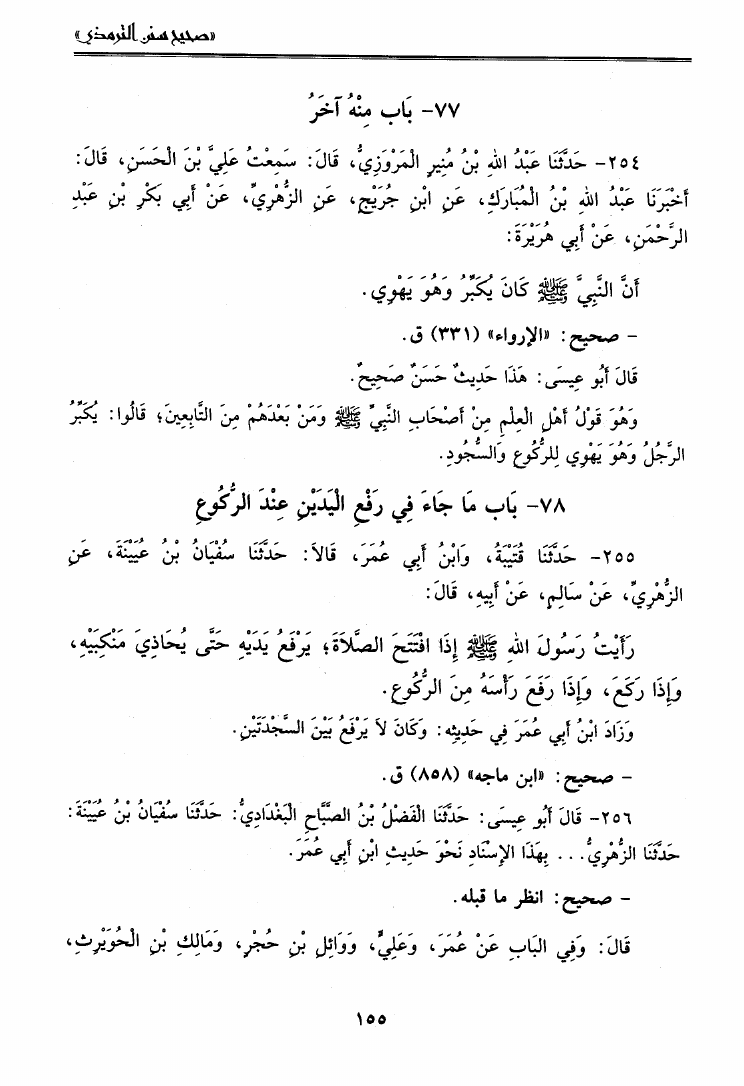 «صحيح سنن الترمذي»
٧٧- بَاب مِنْهُ آخَرُ
٢٥٤- حَدَّثَنَا عَبْدُ اللهِ بْنُ مُنِيرٍ الْمَرْوَزِيُّ، قَالَ: سَمِعْتُ عَلِيَّ بْنَ الْحَسَنِ، قَالَ:
أَخْبَرَنَا عَبْدُ اللهِ بْنُ الْمُبَارَكِ، عَنِ ابْنِ جُرَيْجٍ، عَنِ الزُّهْرِيِّ، عَنْ أَبِي بَكْرِ بْنِ عَبْدِ
الرَّحْمَنِ، عَنْ أَبِي هُرَيْرَةَ:
أَنَّ النَّبِيَّ ﷺ كَانَ يُكَبِّرُ وَهُوَ يَهْوِي.
– صحيح: «الإرواء» (٣٣١) ق.
قَالَ أَبُو عِيسَى: هَذَا حَدِيثٌ حَسَنٌ صَحِيحٌ.
وَهُوَ قَوْلُ أَهْلِ الْعِلْمِ مِنْ أَصْحَابِ النَّبِيِّ ﷺ وَمَنْ بَعْدَهُمْ مِنَ التَّابِعِينَ؛ قَالُوا: يُكَبِّرُ
الرَّجُلُ وَهُوَ يَهْوِي لِلرُّكُوعِ وَالسُّجُودِ.
٧٨- بَاب مَا جَاءَ فِي رَفْعِ الْيَدَيْنِ عِنْدَ الرُّكُوعِ
٢٥٥- حَدَّثَنَا قُتَيْبَةُ، وَابْنُ أَبِي عُمَرَ، قَالَا: حَدَّثَنَا سُفْيَانُ بْنُ عُيَيْنَةَ، عَنِ
الزُّهْرِيِّ، عَنْ سَالِمٍ، عَنْ أَبِيهِ، قَالَ:
رَأَيْتُ رَسُولَ اللهِ ﷺ إِذَا افْتَتَحَ الصَّلَاةَ؛ يَرْفَعُ يَدَيْهِ حَتَّى يُحَاذِيَ مَنْكِبَيْهِ،
وَإِذَا رَكَعَ، وَإِذَا رَفَعَ رَأْسَهُ مِنَ الرُّكُوعِ.
وَزَادَ ابْنُ أَبِي عُمَرَ فِي حَدِيثِهِ: وَكَانَ لَا يَرْفَعُ بَيْنَ السَّجْدَتَيْنِ.
– صحيح: «ابن ماجه» (٨٥٨) ق.
٢٥٦- قَالَ أَبُو عِيسَى: حَدَّثَنَا الْفَضْلُ بْنُ الصَّبَّاحِ الْبَغْدَادِيُّ: حَدَّثَنَا سُفْيَانُ بْنُ عُيَيْنَةَ:
حَدَّثَنَا الزُّهْرِيُّ... بِهَذَا الإِسْنَادِ نَحْوَ حَدِيثِ ابْنِ أَبِي عُمَرَ.
– صحيح: انظر ما قبله.
قَالَ: وَفِي الْبَابِ عَنْ عُمَرَ، وَعَلِيٍّ، وَوَائِلِ بْنِ حُجْرٍ، وَمَالِكِ بْنِ الْحُوَيْرِثِ،
١٥٥